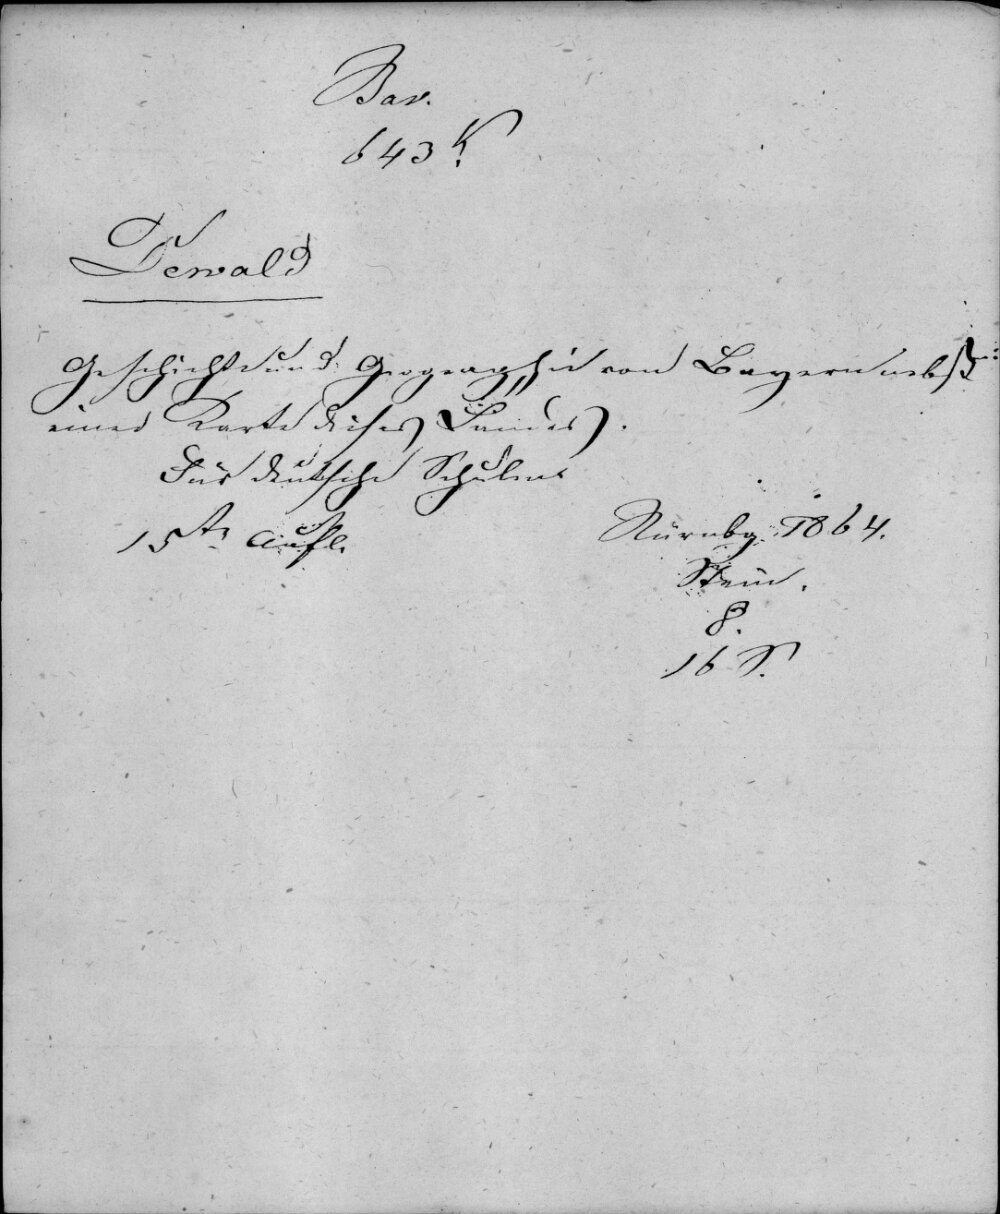 Bav.
643 k.
Dewald
Geschichte und Geographie von Bayern nebst
einer Karte dieses Landes.
Für deutsche Schulen
15te Aufl.
Nürnbg 1864.
Stein.
8.
16 S.